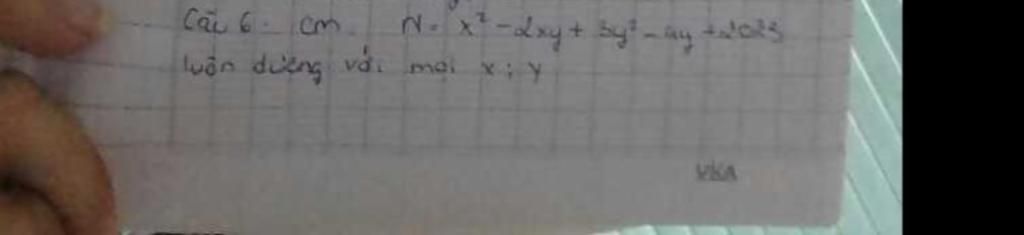 Câu 6. cm. N = x² - 2xy + 3y² - 4y + 2023
luôn dương với mọi x; y
VKA